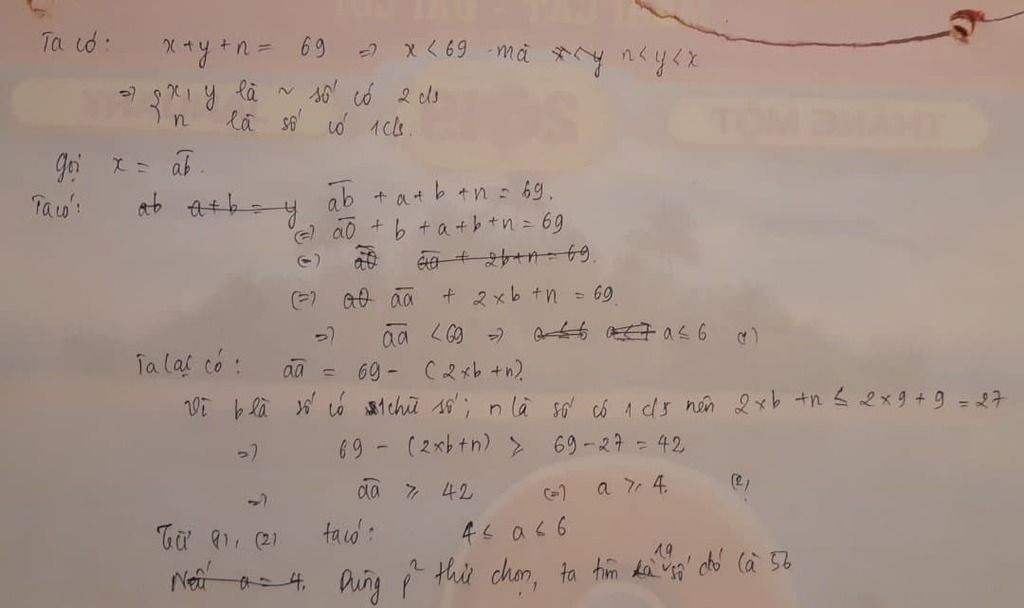 Ta có: x+y+n = 69 => x < 69 mà x<y n<y<x
=> { x, y là ~ số có 2 c/s
n là số có 1 c/s.
Gọi x = ab.
Ta có: ab a+b = y ab + a + b + n = 69.
(=) a0 + b + a + b + n = 69
(=) a0 aa + 2b + n = 69.
(=) a0 aa + 2×b + n = 69.
=> aa < 69 => a≤6 a<7 a ≤ 6 (1)
Ta lại có: aa = 69 - (2×b+n).
Vì b là số có 1 chữ số; n là số có 1 c/s nên 2×b+n ≤ 2×9+9 = 27
=> 69 - (2×b+n) ≥ 69-27 = 42
=> aa ≥ 42 (=) a ≥ 4. (2)
Từ (1), (2) ta có: 4 ≤ a ≤ 6
Nếu a = 4. Dùng p² thử chọn, ta tìm là số đó là 56